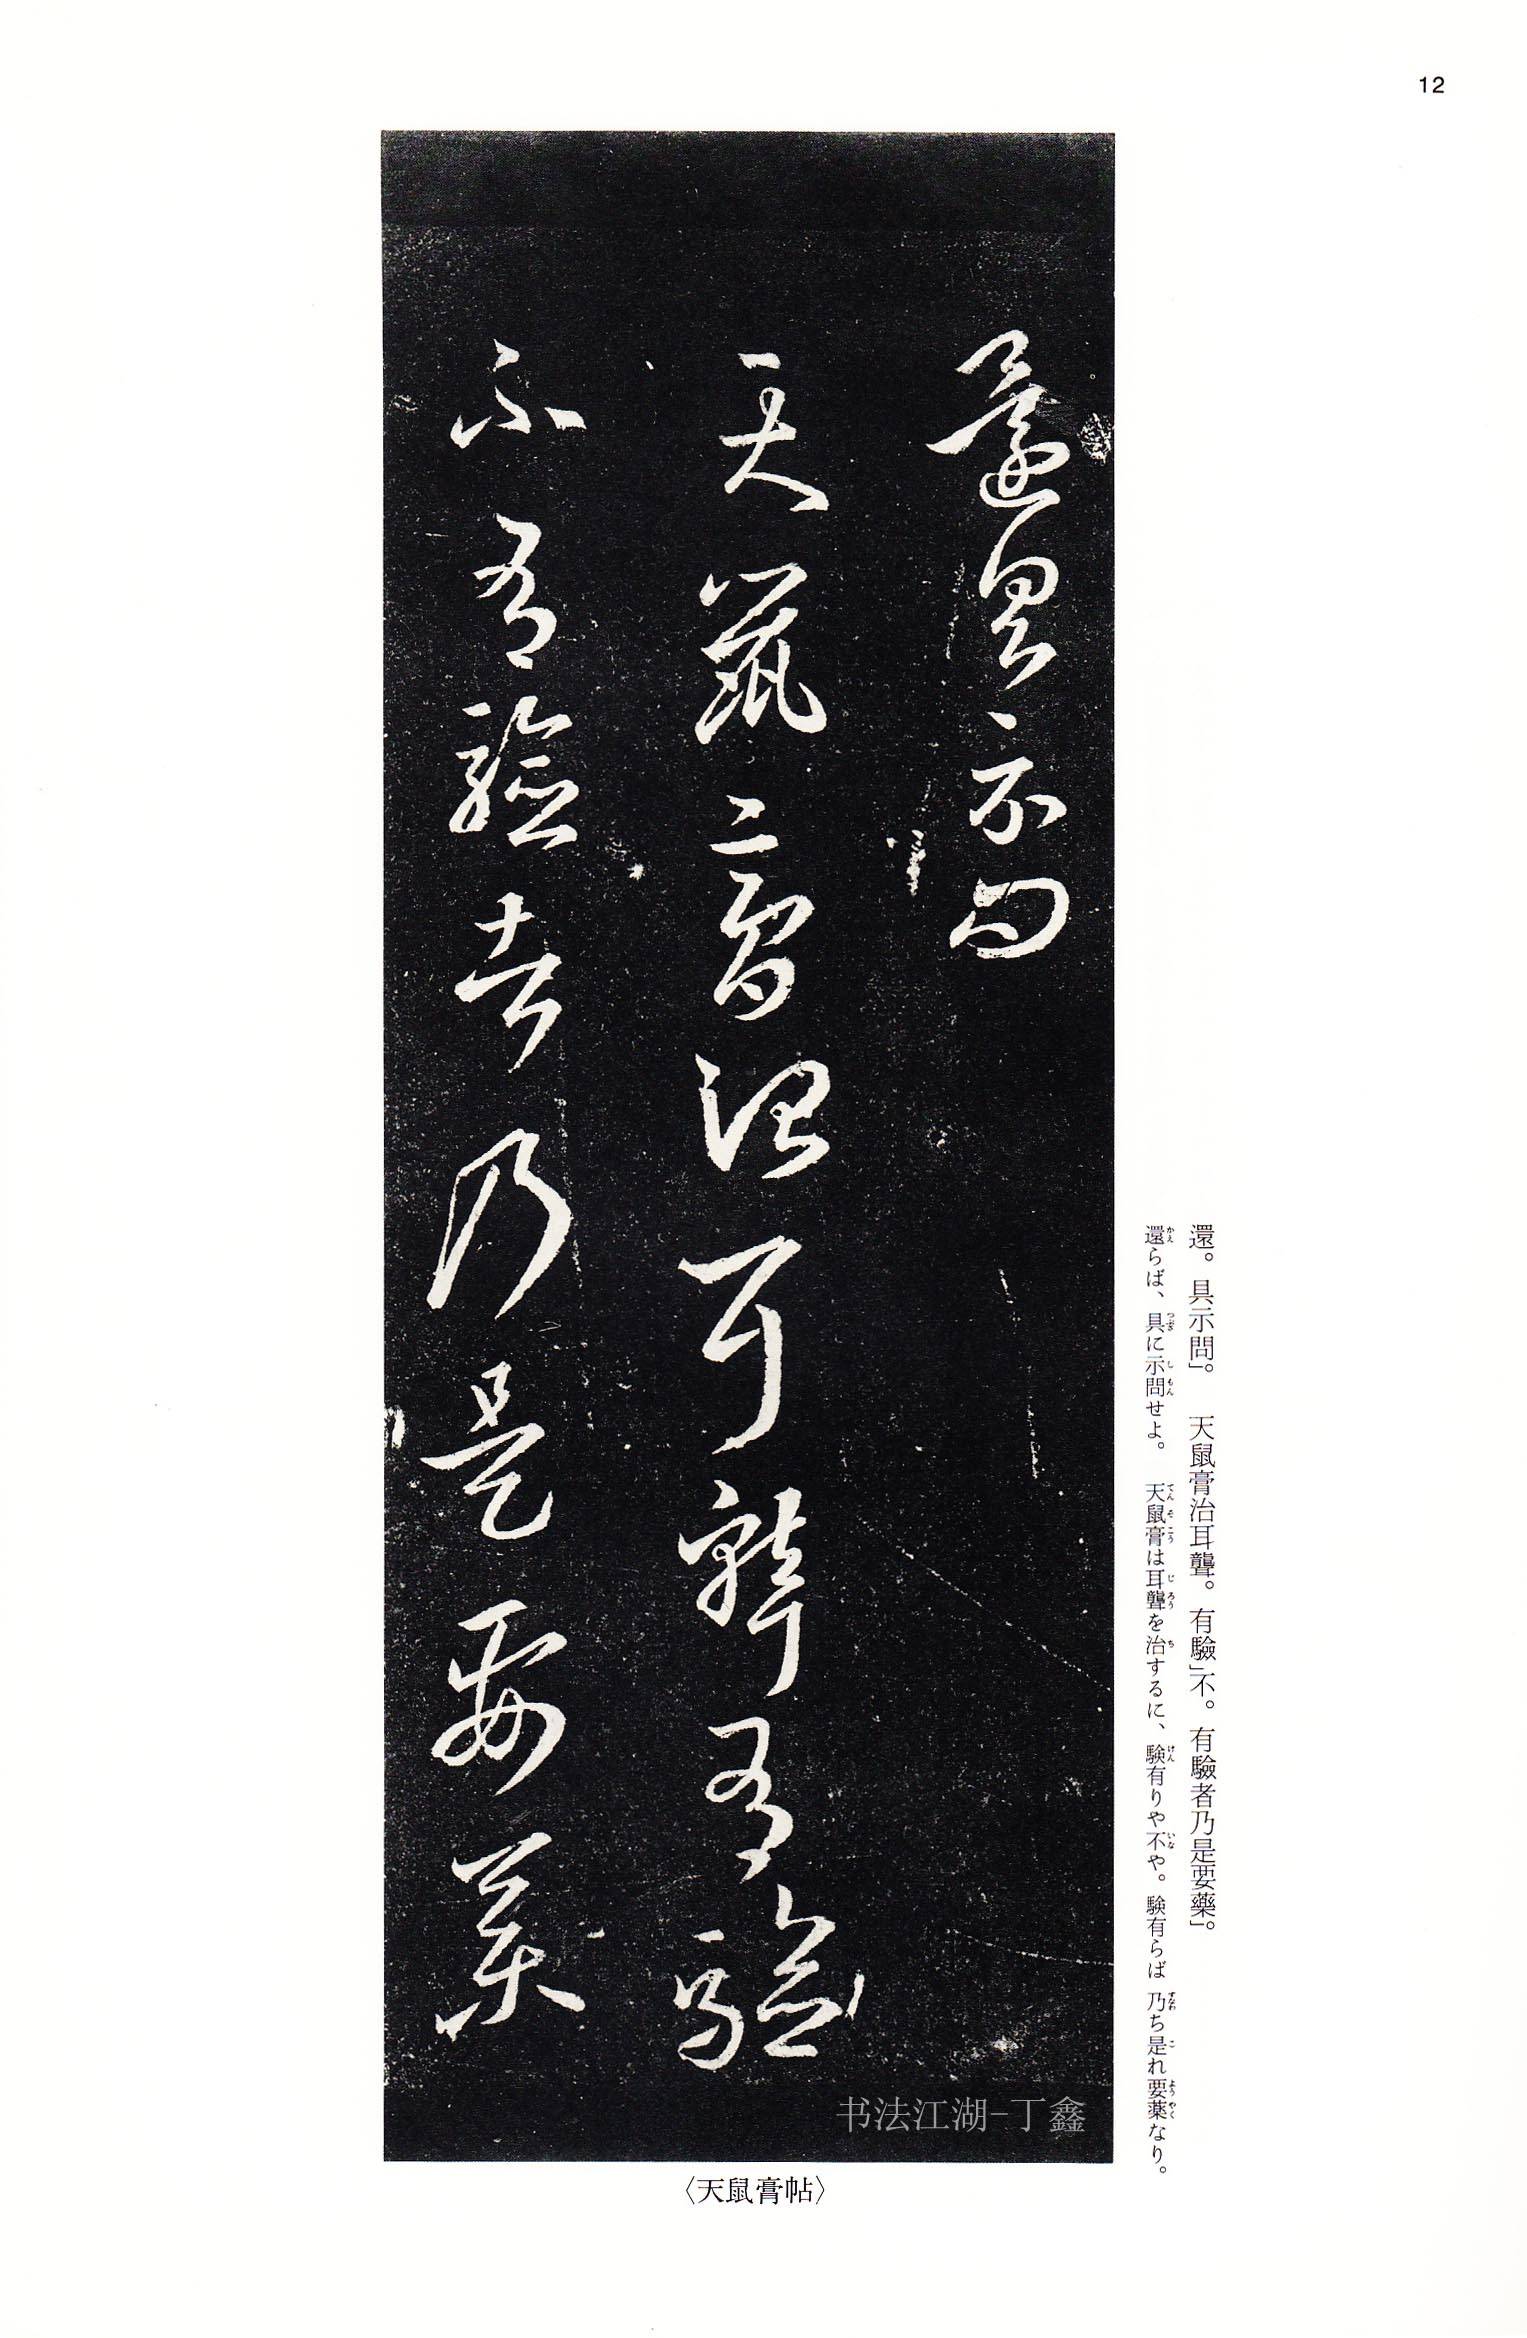 12
還具示問
天鼠膏治耳聾有驗
不有驗者乃是要藥
還。具示問」。　天鼠膏治耳聾。有驗」不。有驗者乃是要藥」。
還らば、具に示問せよ。　天鼠膏は耳聾を治するに、験有りや不や。験有らば乃ち是れ要薬なり。
书法江湖-丁鑫
〈天鼠膏帖〉